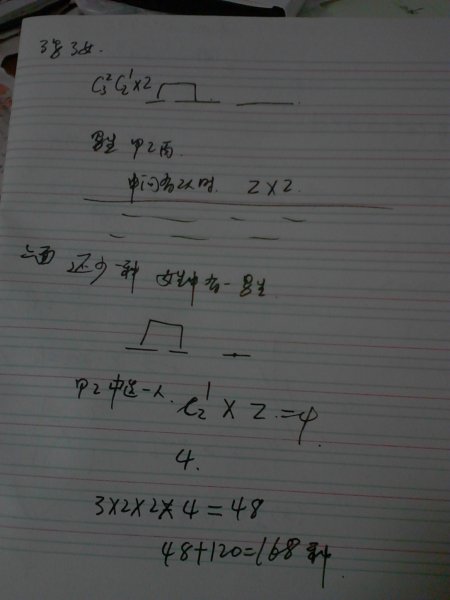 3男3女.
C₃² C₂¹×2
男生 甲乙丙
中间有2人时. 2×2.
上面 还少一种 女生中有一男生
甲乙中选一人. C₂¹ × 2 = 4
4.
3×2×2×4=48
48+120=168种.